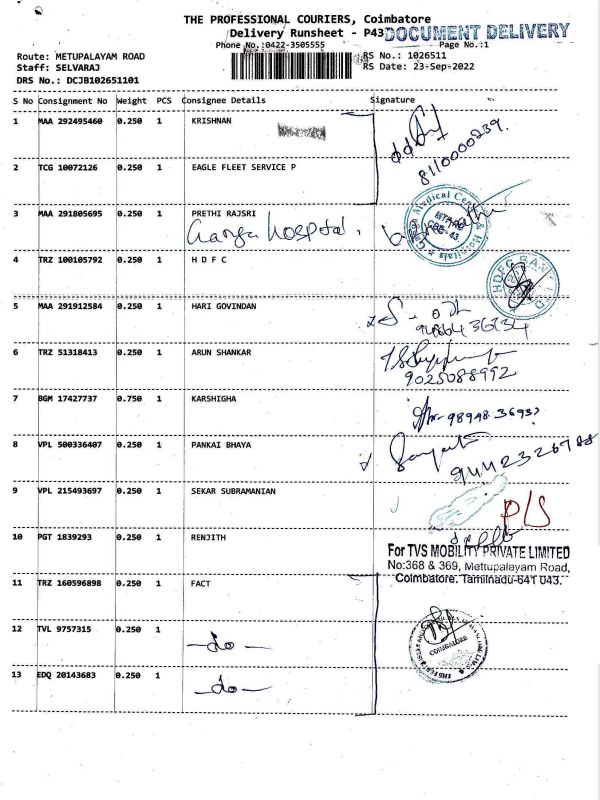 THE PROFESSIONAL COURIERS, Coimbatore
Delivery Runsheet - P43
DOCUMENT DELIVERY
Phone No.:0422-3505555
Page No.:1
Route: METUPALAYAM ROAD
RS No.: 1026511
Staff: SELVARAJ
RS Date: 23-Sep-2022
DRS No.: DCJB102651101
S No Consignment No Weight PCS Consignee Details Signature
1 MAA 292495460 0.250 1 KRISHNAN
8110000239.
2 TCG 10072126 0.250 1 EAGLE FLEET SERVICE P
3 MAA 291805695 0.250 1 PRETHI RAJSRI
Ganga Hospital.
Medical Centre & Hospitals
4 TRZ 100105792 0.250 1 H D F C
HDFC BANK LTD
5 MAA 291912584 0.250 1 HARI GOVINDAN
6 TRZ 51318413 0.250 1 ARUN SHANKAR
9025088992
7 BGM 17427737 0.750 1 KARSHIGHA
98948 36937
8 VPL 500336407 0.250 1 PANKAI BHAYA
9442326788
9 VPL 215493697 0.250 1 SEKAR SUBRAMANIAN
P/S
10 PGT 1839293 0.250 1 RENJITH
For TVS MOBILITY PRIVATE LIMITED
No:368 & 369, Mettupalayam Road,
Coimbatore. Tamilnadu-641 043.
11 TRZ 160596898 0.250 1 FACT
12 TVL 9757315 0.250 1
—do—
COIMBATORE
13 EDQ 20143683 0.250 1
—do—